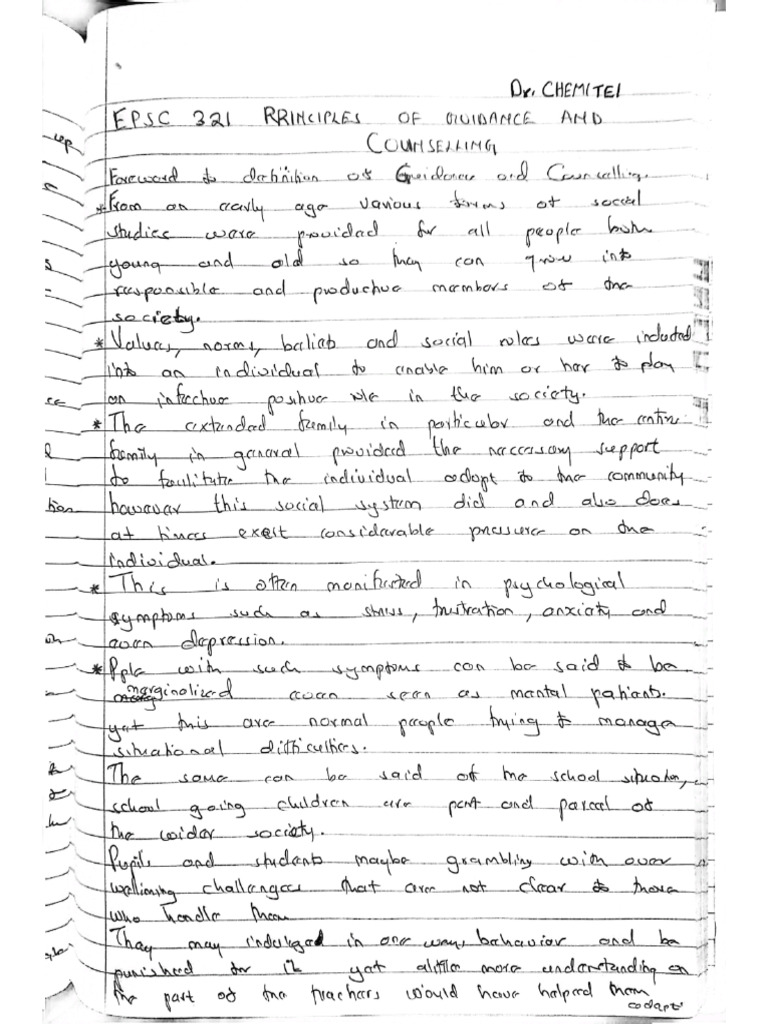 Dr. CHEMITEI
EPSC 321 PRINCIPLES OF GUIDANCE AND
COUNSELLING
Foreword to definition of Guidance and Councelling.
*From an early age various forms of social
studies were provided for all people both
young and old so they can grow into
responsible and productive members of the
society.
*Values, norms, beliefs and social roles were included
into an individual to enable him or her to play
an infective positive role in the society.
*The extended family in particular and the entire
family in general provided the neccessary support
to facilitate the individual adopt to the community
however this social system did and also does
at times exert considerable pressure on the
individual.
*This is often manifested in psychological
symptoms such as stress, frustration, anxiety and
even depression.
*Pple with such symptoms can be said to be
marginalized even seen as mental patients.
yet this are normal people trying to manage
situational difficulties.
The same can be said of the school situation,
school going children are part and parcel of
the wider society.
Pupils and students maybe grambling with over
wellming challenges that are not clear to those
who handle them
They may indulged in one way behavior and be
punished for it yet alittle more understanding on
the part of the teachers would have helped them